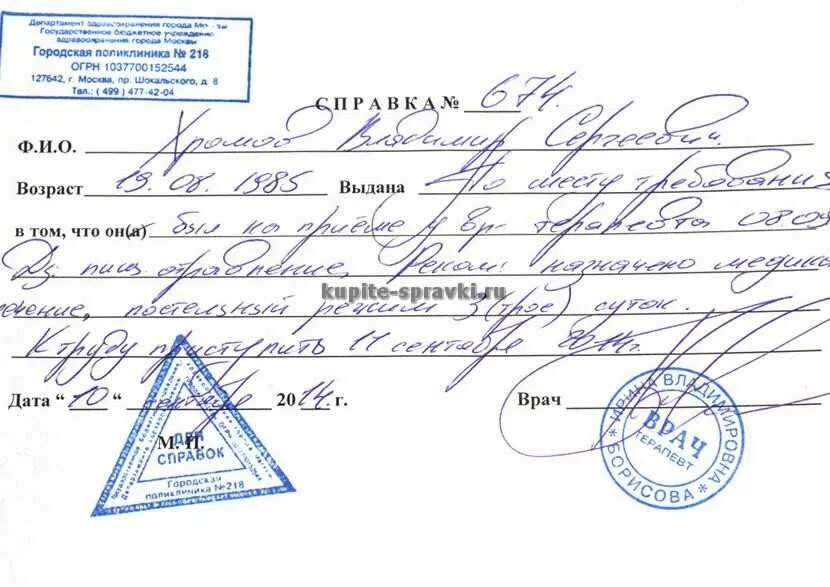 Департамент здравоохранения города Москвы
Государственное бюджетное учреждение
здравоохранения города Москвы
Городская поликлиника № 218
ОГРН 1037700152544
127642, г. Москва, пр. Шокальского, д. 8
Тел.: ( 499 ) 477-42-04
СПРАВКА № 674.
Ф.И.О. Хромов Владимир Сергеевич.
Возраст 19.08.1985 Выдана По месту требования
в том, что он(а) был на приёме у вр- терапевта 08.09
Дз: пищ. отравление. Реком: назначено медика
kupite-spravki.ru
ечение, постельный режим 3 (трое) суток.
К труду приступить 11 сентября 2014г.
Дата “10“ сентября 2014 г. Врач
М. П.
ДЛЯ
СПРАВОК
Городская
поликлиника №218
ИРИНА ВЛАДИМИРОВНА
ВРАЧ
ТЕРАПЕВТ
БОРИСОВА